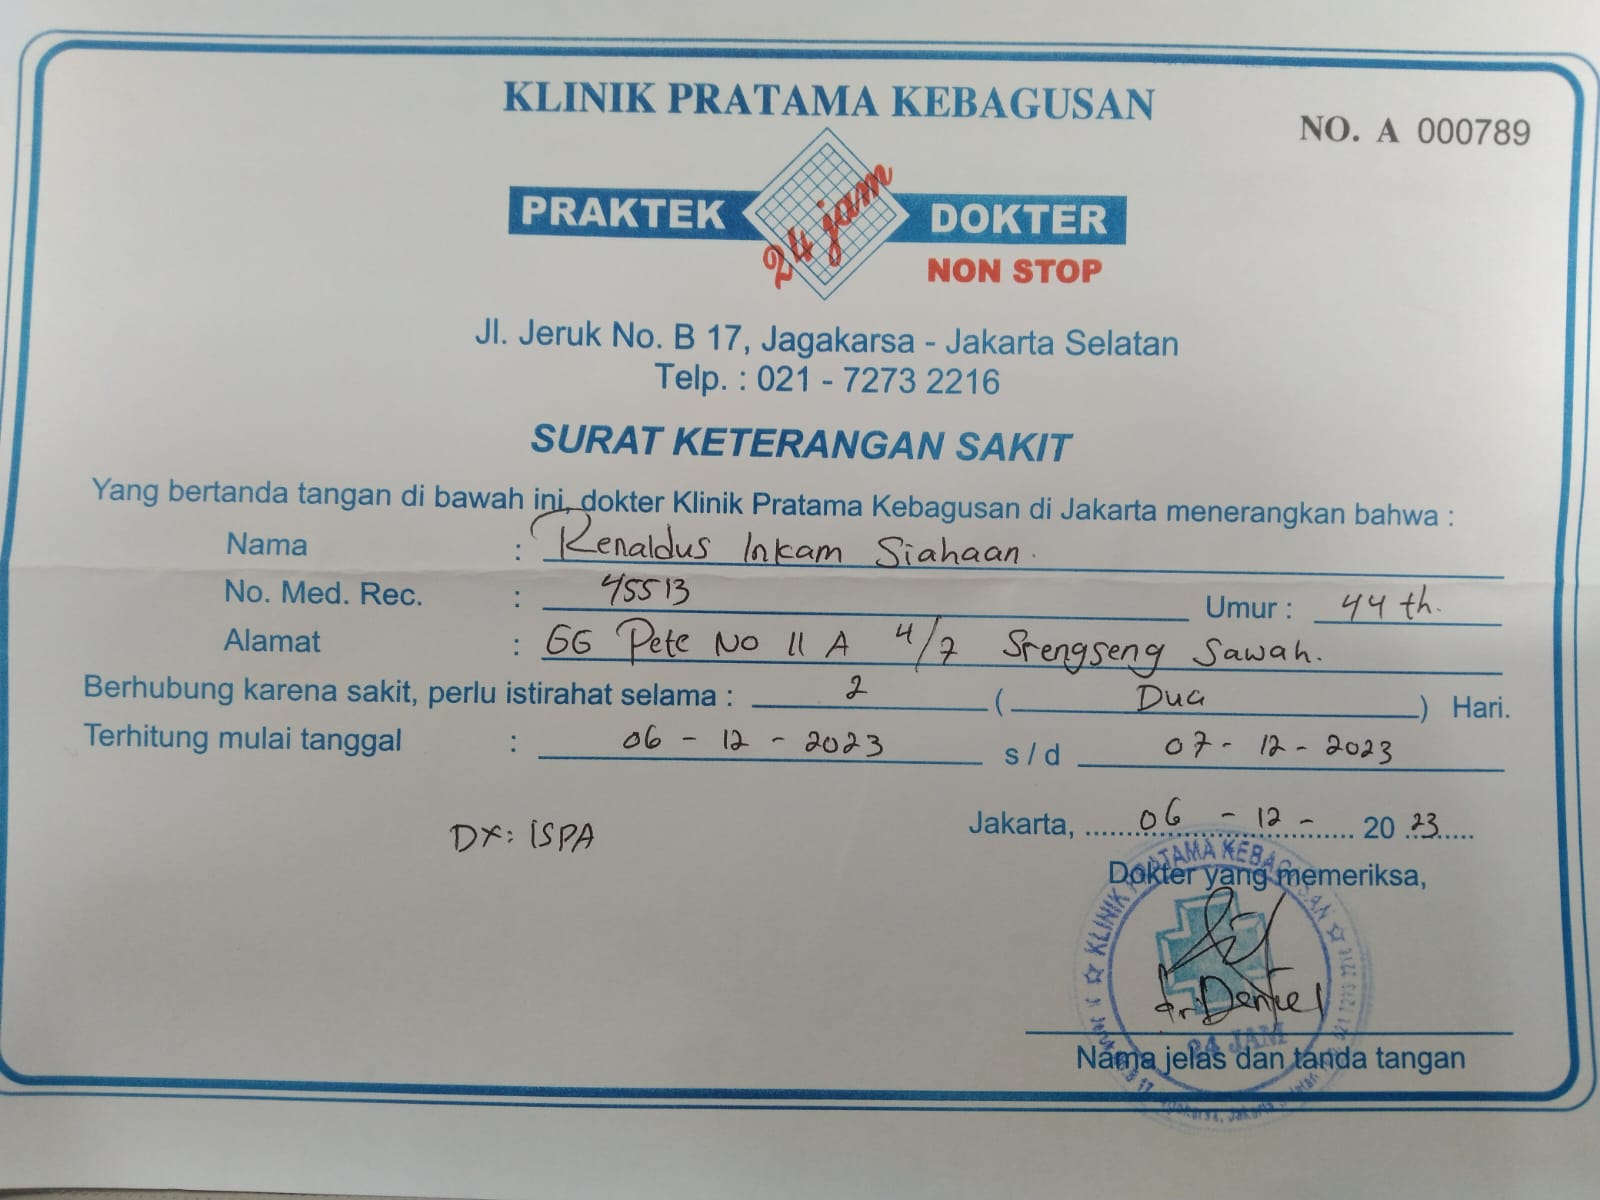 KLINIK PRATAMA KEBAGUSAN
NO. A 000789
PRAKTEK 24 jam DOKTER
NON STOP
Jl. Jeruk No. B 17, Jagakarsa - Jakarta Selatan
Telp. : 021 - 7273 2216
SURAT KETERANGAN SAKIT
Yang bertanda tangan di bawah ini, dokter Klinik Pratama Kebagusan di Jakarta menerangkan bahwa :
Nama : Renaldus Inkam Siahaan.
No. Med. Rec. : 45513 Umur : 44 th.
Alamat : GG Pete No 11 A 4/7 Srengseng Sawah.
Berhubung karena sakit, perlu istirahat selama : 2 ( Dua ) Hari.
Terhitung mulai tanggal : 06 - 12 - 2023 s / d 07 - 12 - 2023
Jakarta, 06 - 12 - 20 23
DX: ISPA
Dokter yang memeriksa,
KLINIK PRATAMA KEBAGUSAN
dr. Deniel
24 JAM
Nama jelas dan tanda tangan